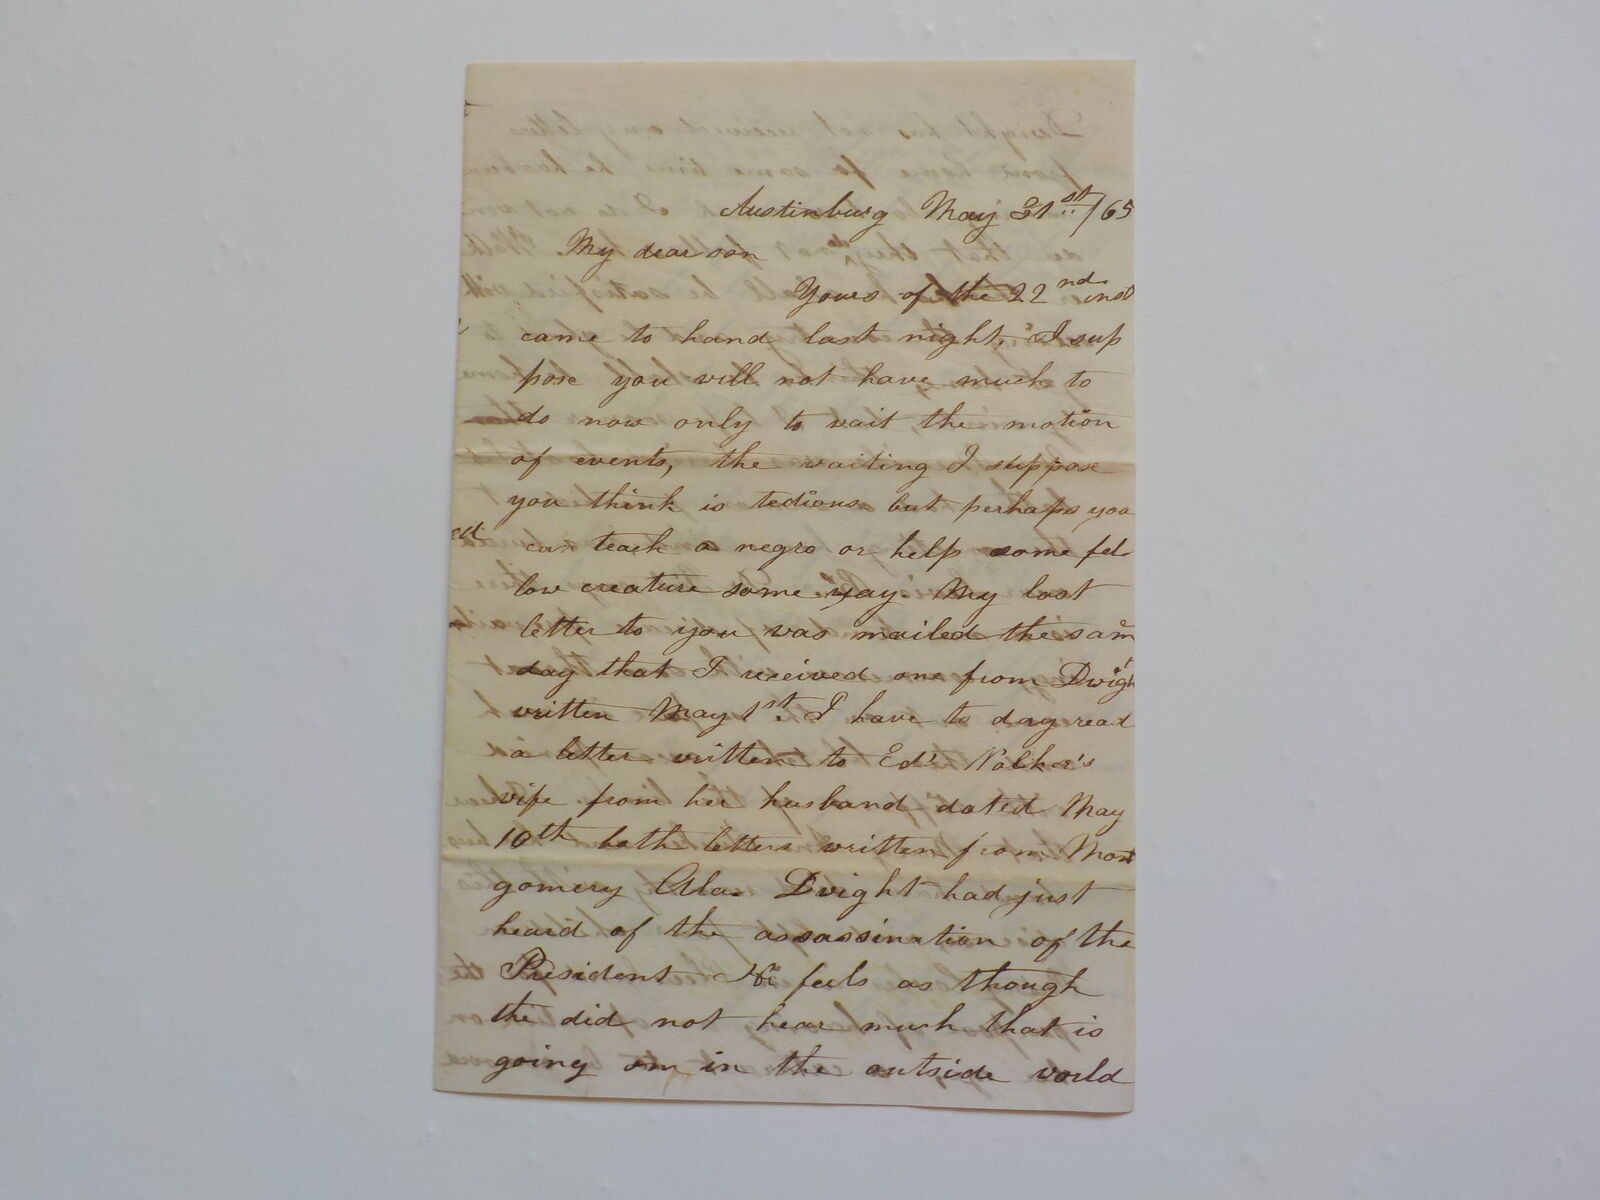 Austinburg May 31st /65
My dear son
Yours of the 22nd inst
came to hand last night, I sup
pose you will not have much to
do now only to wait the motion
of events, the waiting I suppose
you think is tedious but perhaps you
can teach a negro or help some fel
low creature some way My last
letter to you was mailed the same
day that I received one from Dwight
written May 1st. I have to day read
a letter written to Ed' Walker's
wife from her husband dated May
10th both letters written from Mont
gomery Ala. Dwight had just
heard of the assassination of the
President He feels as though
the did not hear much that is
going on in the outside world